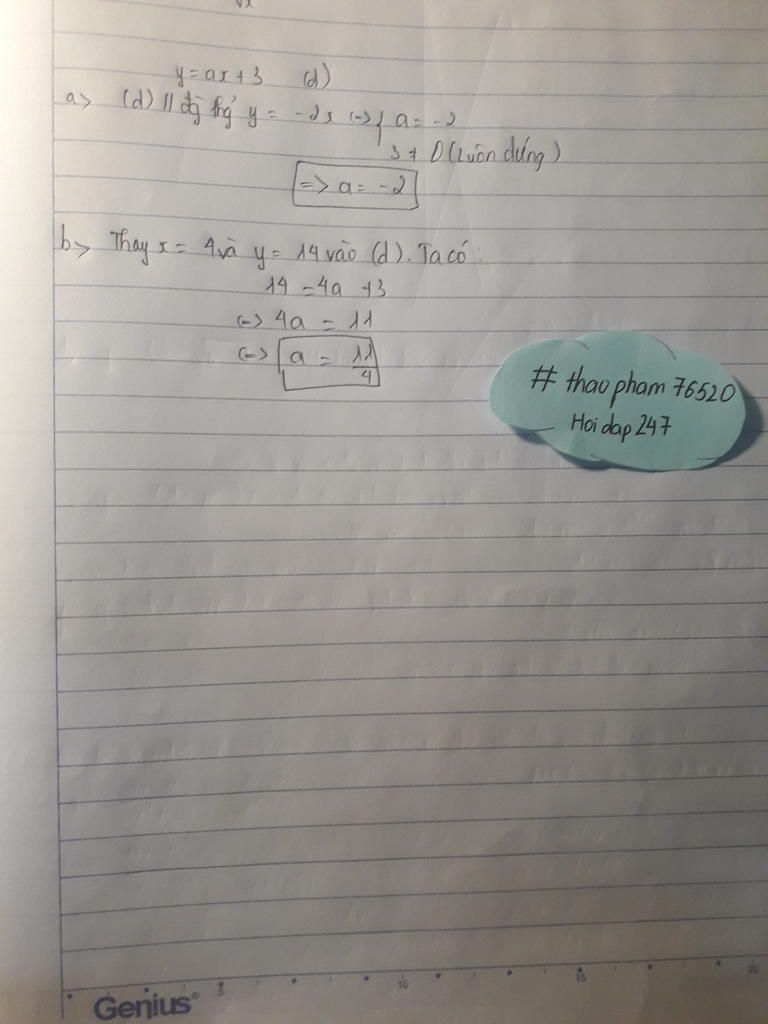 y = ax + 3 (d)
a> (d) // đt y = -2x <=> { a = -2
3 ≠ 0 (luôn đúng)
=> a = -2
b> Thay x = 4 và y = 14 vào (d). Ta có:
14 = 4a + 3
<=> 4a = 11
<=> a = 11/4
# thaopham76520
Hoidap247
5 10 15 20
Genius